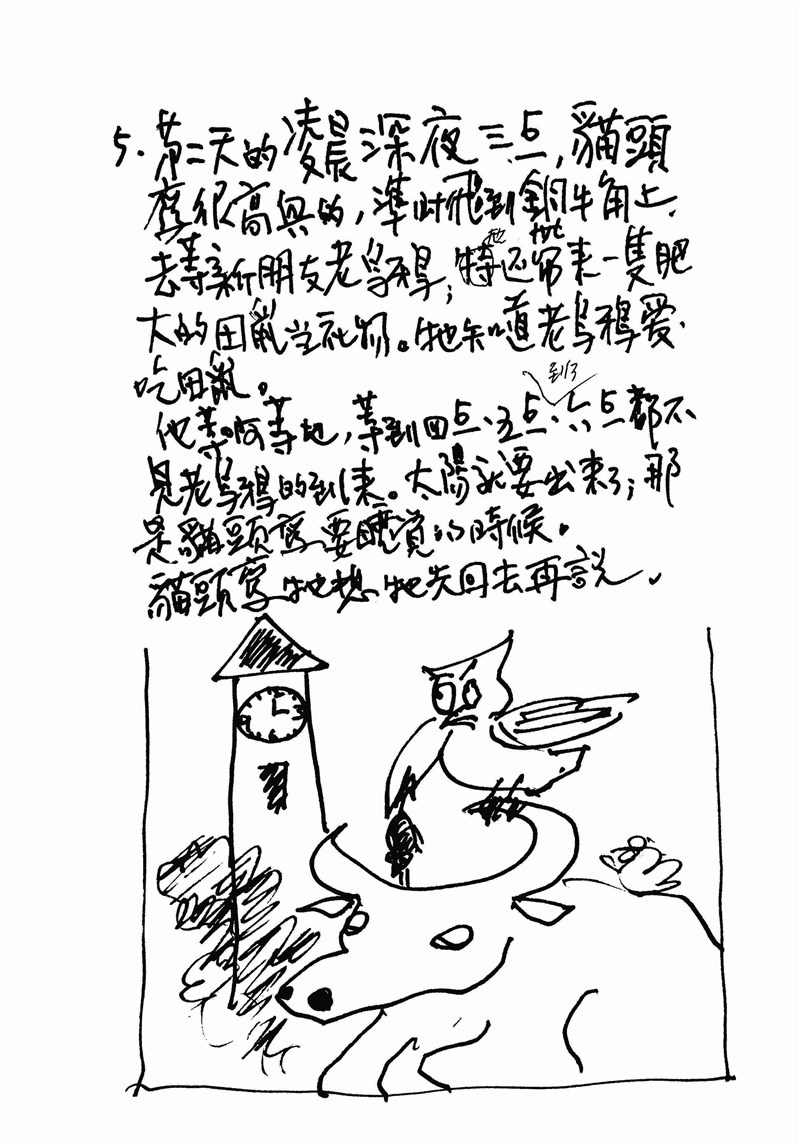 5. 第二天的凌晨深夜三点，貓頭
鹰很高興的，準时飛到銅牛角上，
去等新朋友老烏鴉；牠还帶來一隻肥
大的田鼠当礼物。牠知道老烏鴉爱
吃田鼠。
到了
他等啊等地，等到四点、五点、六点都不
見老烏鴉的到來。太陽就要出來了；那
是貓頭鹰要睡覚的時候。
貓頭鹰牠想牠先回去再説。